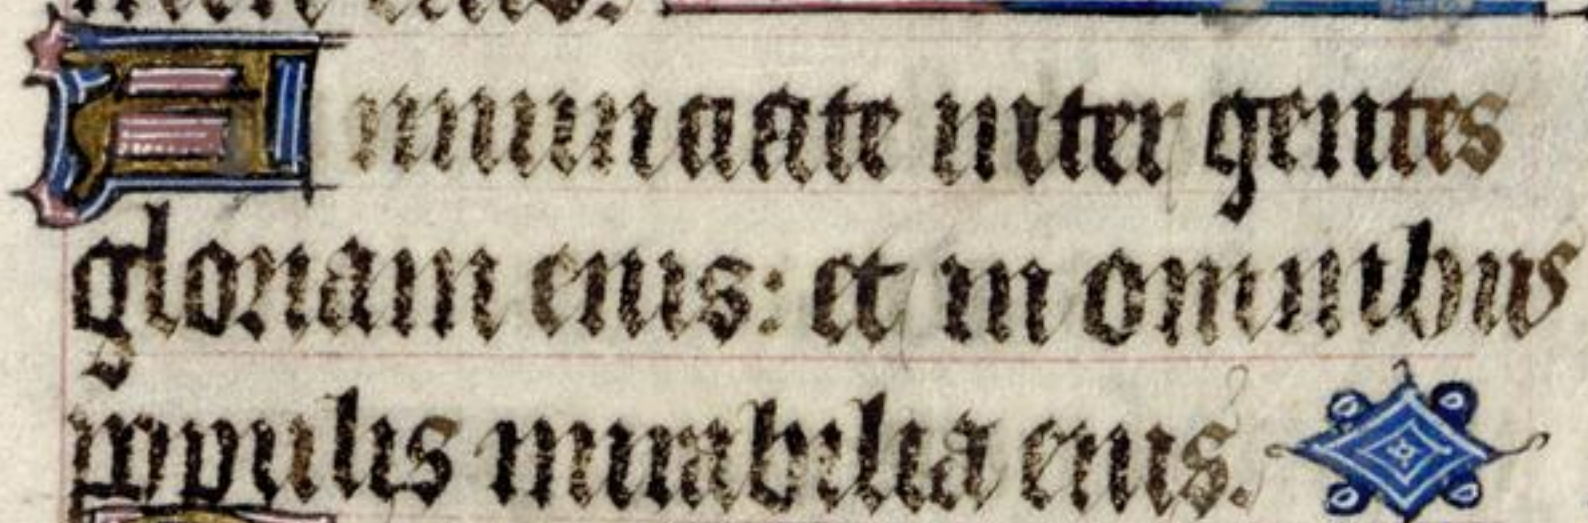 eius.
Annunciate inter gentes
gloriam eius: et in omnibus
populis mirabilia eius.